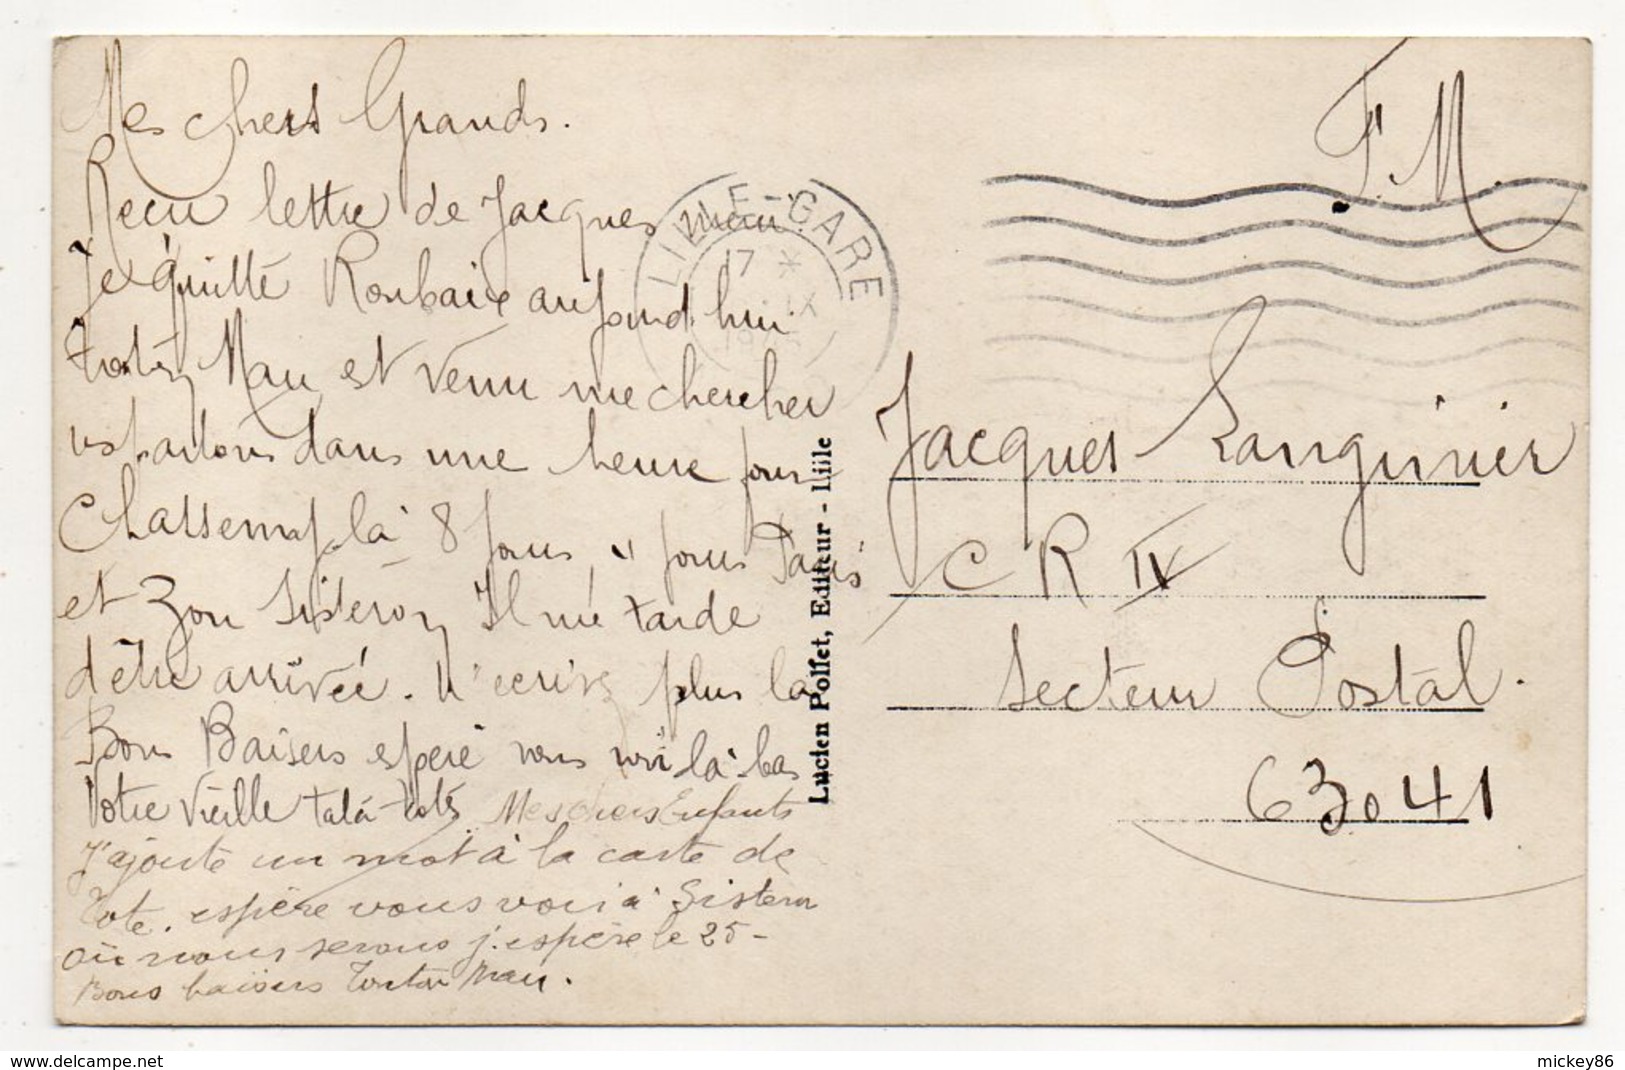 Mes chers Grands.
Reçu lettre de Jacques
Je quitte Roubaix aujourd'hui
Mau est venu me chercher
partons dans une heure pour
là 8 jours, 4 jours Paris
et Sisteron Il me tarde
d'être arrivée. N'écrivez plus là
Bons Baisers espère vous voir là bas
Votre vieille tata Mes chers Enfants
J'ajoute un mot à la carte de
Tote. espère vous voir à Sisteron
où nous serons j'espère le 25-
Bons baisers Tonton Mau.
Lucien Pollet, Editeur - Lille
LILLE-GARE
17 *
F.M.
Jacques Sanguinier
C R IV
Secteur Postal.
63041
www.delcampe.net
mickey86